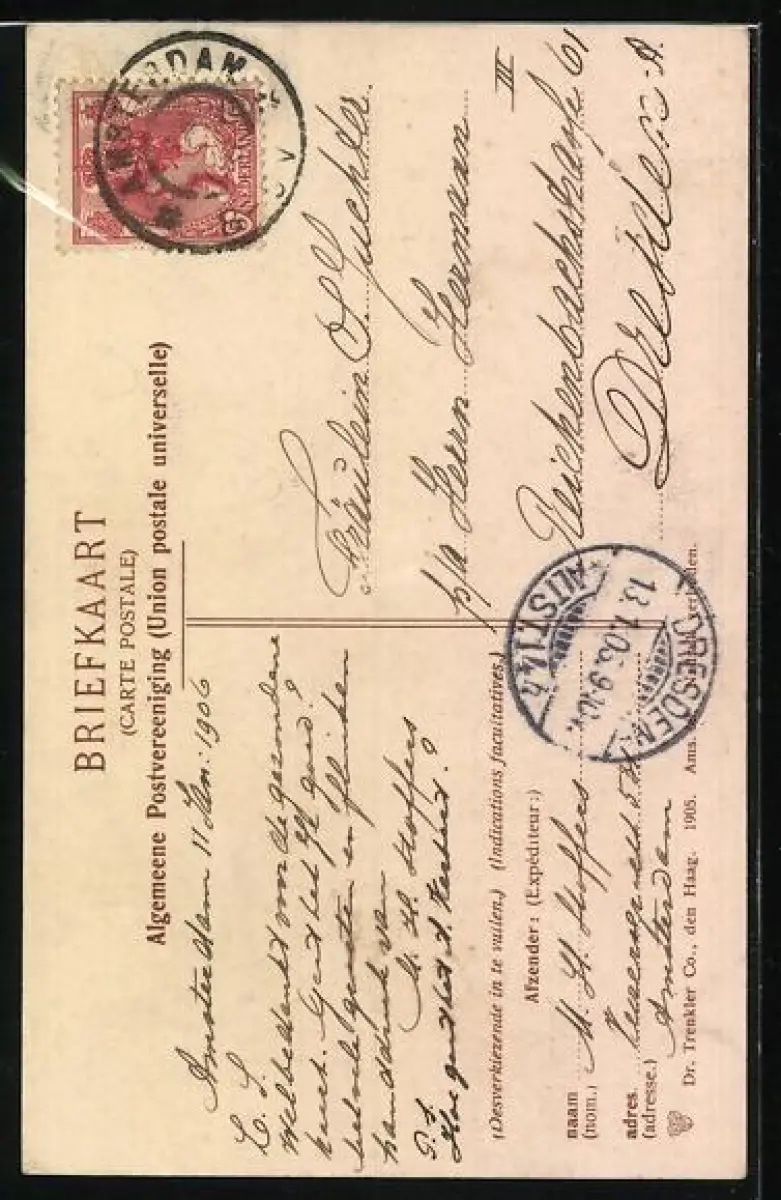 BRIEFKAART
(CARTE POSTALE)
Algemeene Postvereeniging (Union postale universelle)
AMSTERDAM
NEDERLAND
Amsterdam 11 Jan: 1906
L. S.
Welbedankt voor de gezondene
kaart. Gaat het II goed?
beleefde groeten en flinken
handdruk van
M. H. Stoffers
P. S.
Hoe gaat het A. Herbert?
(Desverkiezende in te vullen.) (Indications facultatives.)
Afzender: (Expéditeur:)
naam M. H. Stoffers
(nom.)
adres
(adresse.) Amsterdam
Dr. Trenkler Co., den Haag. 1905. Ams.
Fräulein O Fuchter.
p/a Herrn Hermann
Reichenbachstrasse 61 III
Dresden A.
DRESDEN
ALTST. 14
13.1.06. 9-10V.